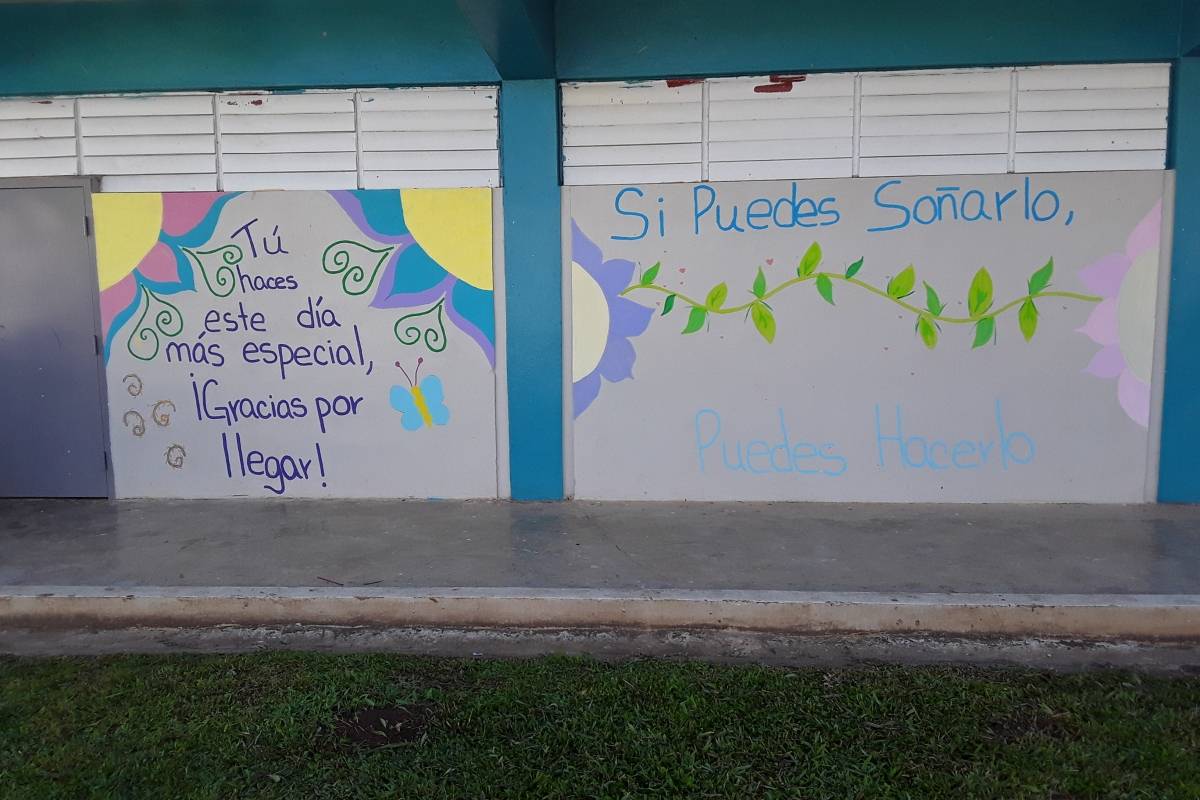 Tú
haces
este día
más especial,
¡Gracias por
llegar!
Si Puedes Soñarlo,
Puedes Hacerlo